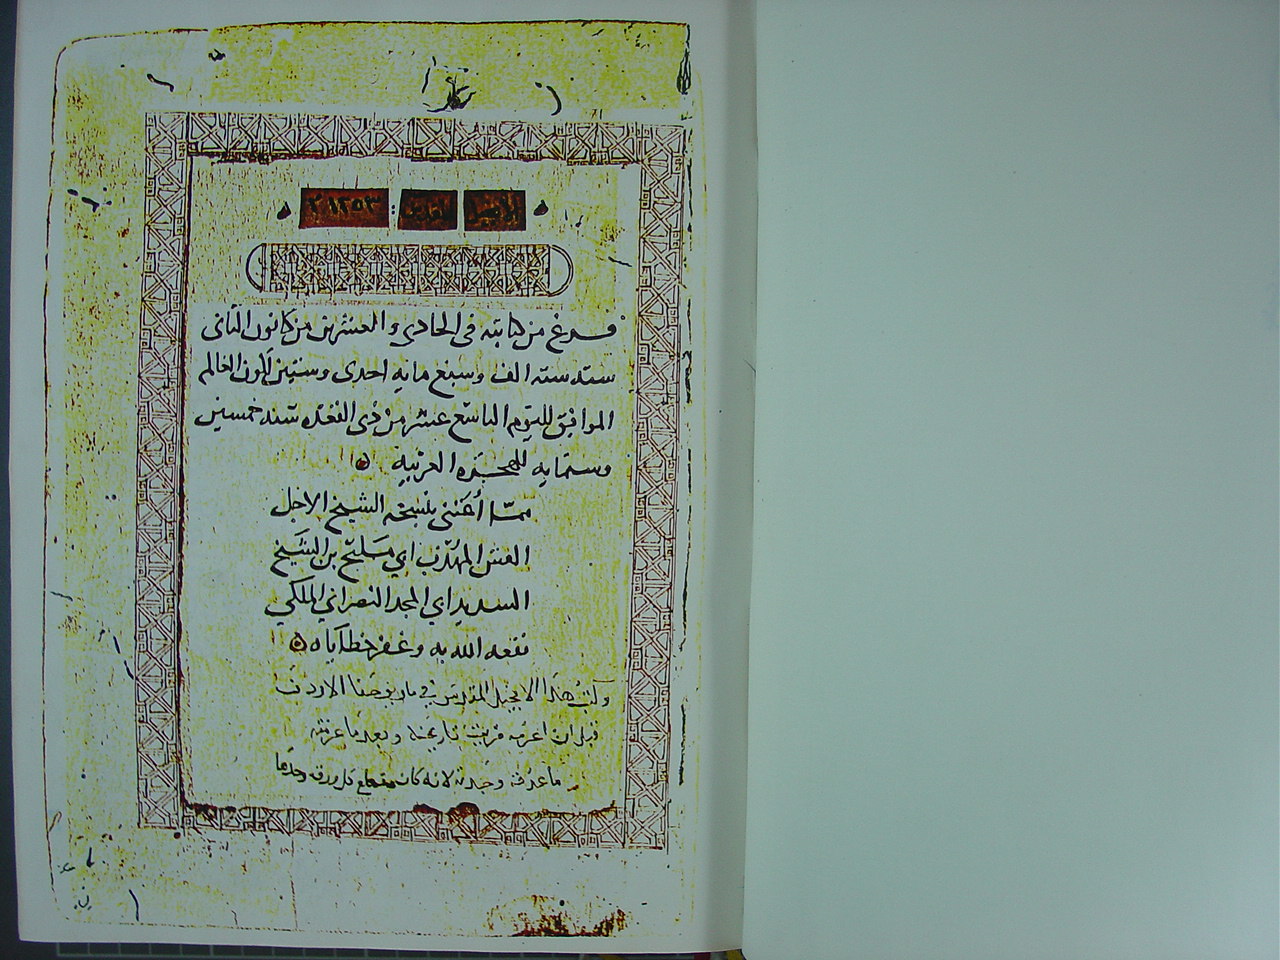 الانجيل المقدس : ١٢٥٣ م
فرغ من كتابته في الحادي والعشرين من كانون الثاني
سنه سته الف وسبع مايه احدى وستين لكون العالم
الموافق لليوم التاسع عشر من ذي القعده سنه خمسين
وستمايه للهجره العربيه
ممّا أعتنى بنسخه الشيخ الاجل
القس المهذب ابي مليح بن الشيخ
السديد ابي المجد النصراني الملكي
نفعه الله به وغفر خطاياه
وكتب هذا الانجيل المقدس في مار يوحنا
قبل ان اعرف تاريخه وبعد ما عرفته
ما عدت وجدته لانه كان كل ورقه وحدها